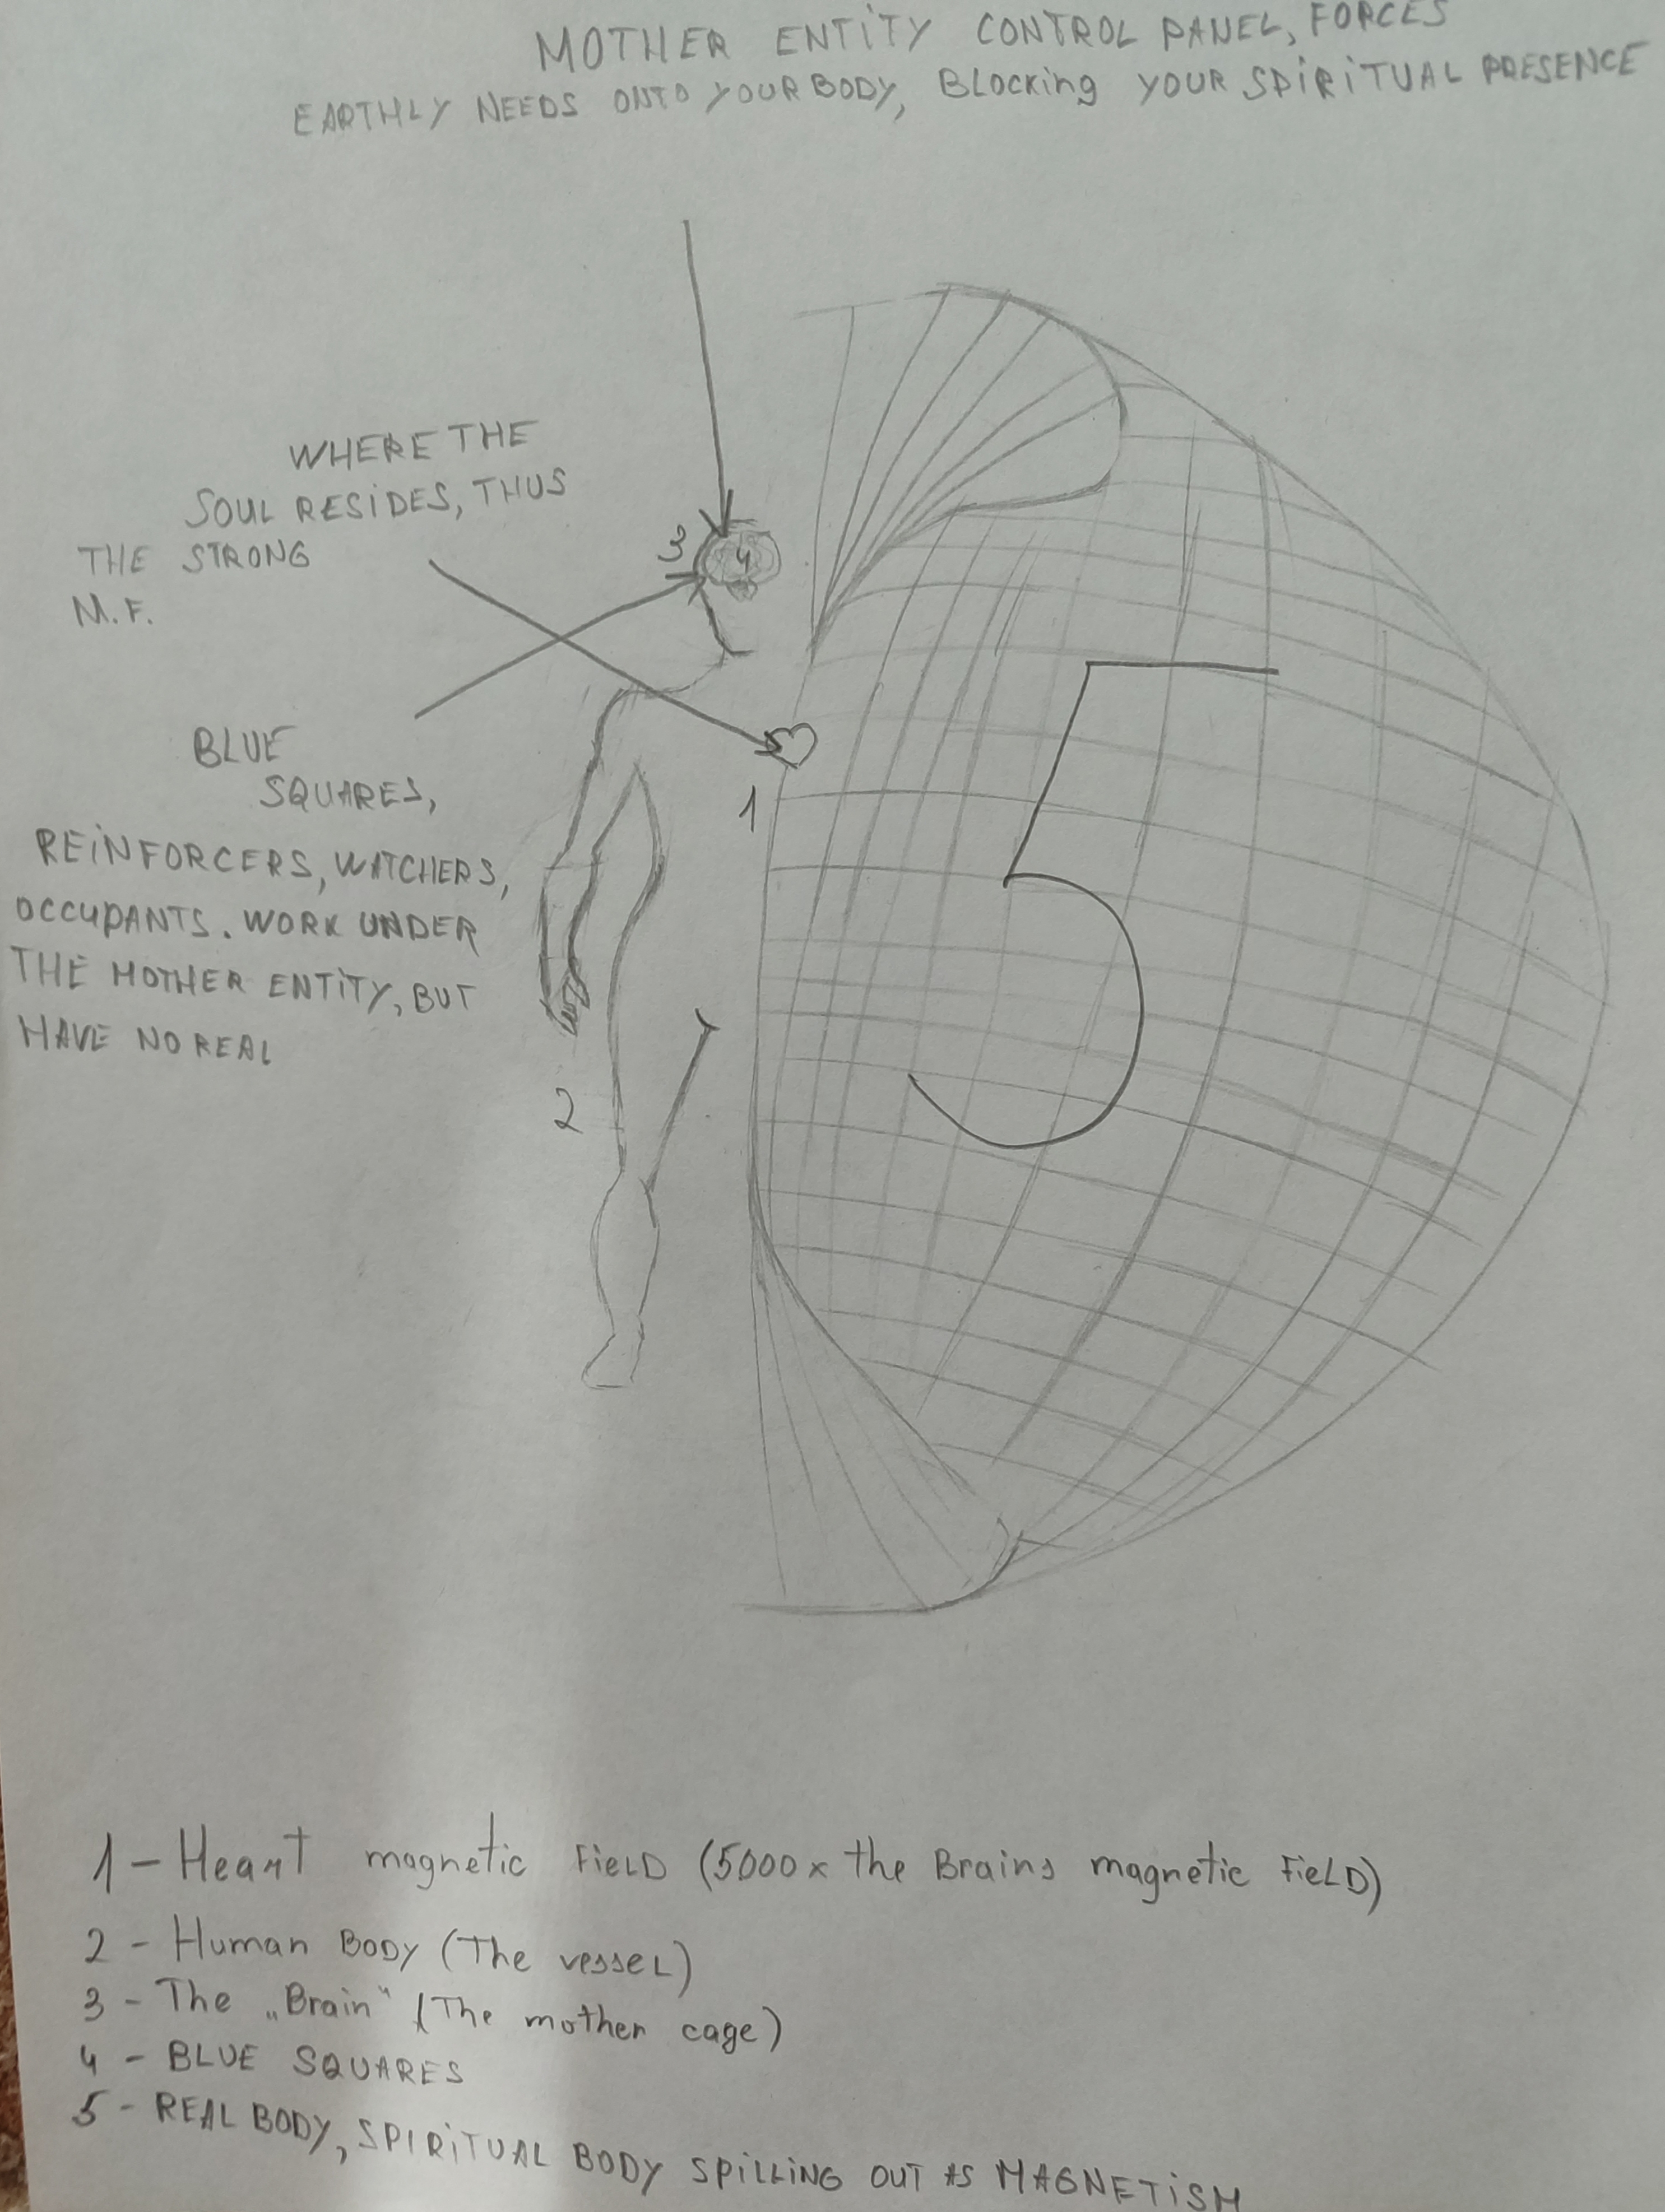 MOTHER ENTITY CONTROL PANEL, FORCES
EARTHLY NEEDS ONTO YOUR BODY, Blocking YOUR SPIRITUAL PRESENCE
WHERE THE
SOUL RESIDES, THUS
THE STRONG
M.F.
3
4
BLUE
SQUARES,
REINFORCERS, WATCHERS,
OCCUPANTS. WORK UNDER
THE MOTHER ENTITY, BUT
HAVE NO REAL
1
5
2
1 - Heart magnetic FieLD (5000x the Brains magnetic FieLD)
2 - Human BODY (The vesseL)
3 - The „Brain" (The mother cage)
4 - BLUE SQUARES
5 - REAL BODY, SPIRITUAL BODY SPILLING OUT AS MAGNETISM